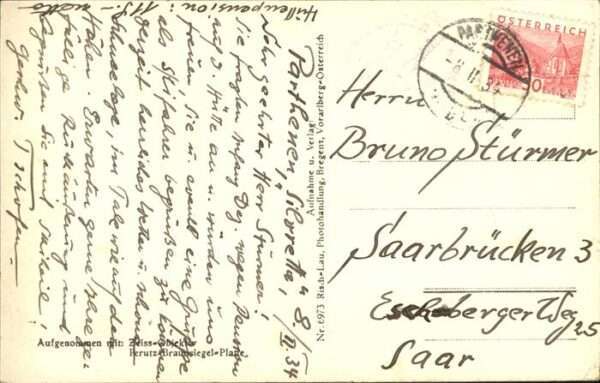 Hüttenpension: 11 S. - netto
Parthenen "Silvretta", 8/II 34
Sehr geehrter Herr Stürmer!
Sie fragten Anfang Dez. wegen Pension
auf d. Hütte an u. würden uns
freuen, Sie u. eventl. eine Gruppe
als Skifahrer begrüßen zu können
Derzeit herrliches Wetter u. schöne
Schneelage, im Tale wie auf den
Höhen. Erwarten gerne Ihre ge-
fällige Rückäußerung und
begrüßen Sie mit Skiheil!
Gerhard Tschofen
Aufnahme u. Verlag:
Nr. 6973 Risch-Lau, Photohandlung, Bregenz, Vorarlberg-Österreich
Aufgenommen mit: Zeiss-Objektiv
Perutz-Braunsiegel-Platte
ÖSTERREICH
PARTHENEN
-8.II.34
Herrn
Bruno Stürmer
Saarbrücken 3
bergerweg 25
Saar